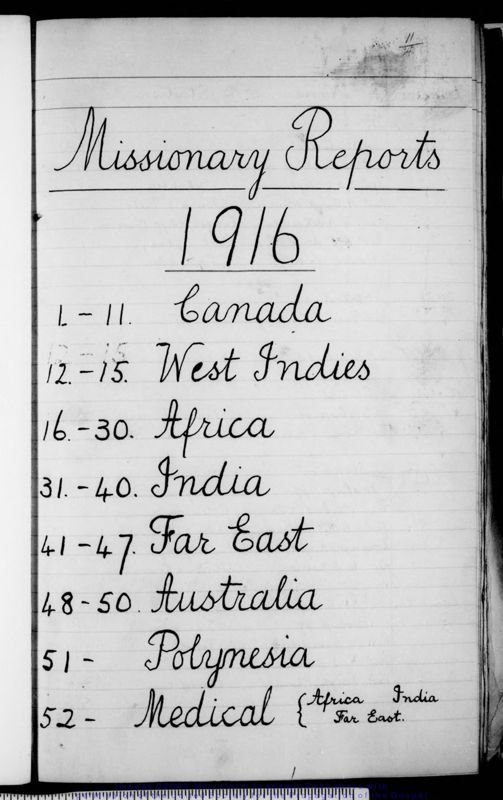 11
Missionary Reports
1916
1.-11. Canada
12.-15. West Indies
16.-30. Africa
31.-40. India
41-47. Far East
48-50. Australia
51- Polynesia
52- Medical { Africa India
Far East.